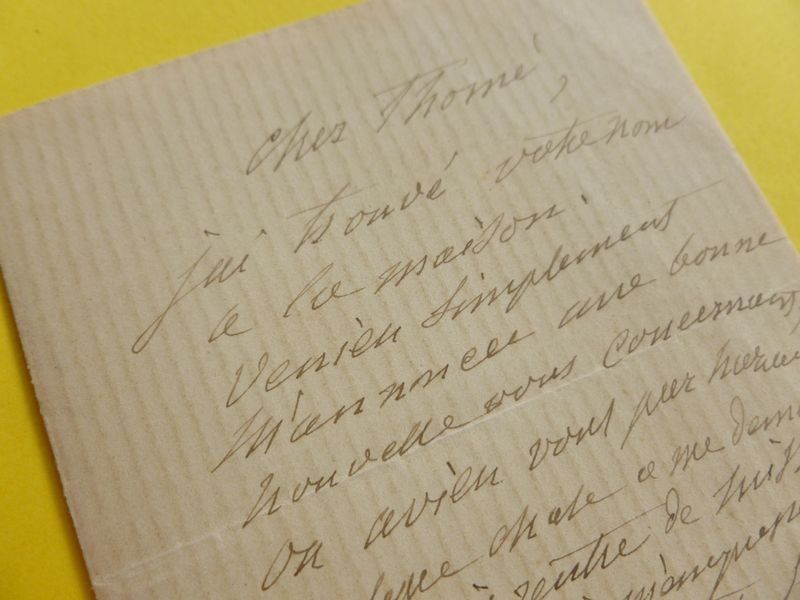 cher Thomé,
j'ai trouvé votre nom
a la maison.
Veniez simplement
M'annoncer une bonne
nouvelle vous concernant
ou aviez vous par hazard
chose a me dem
rentre de